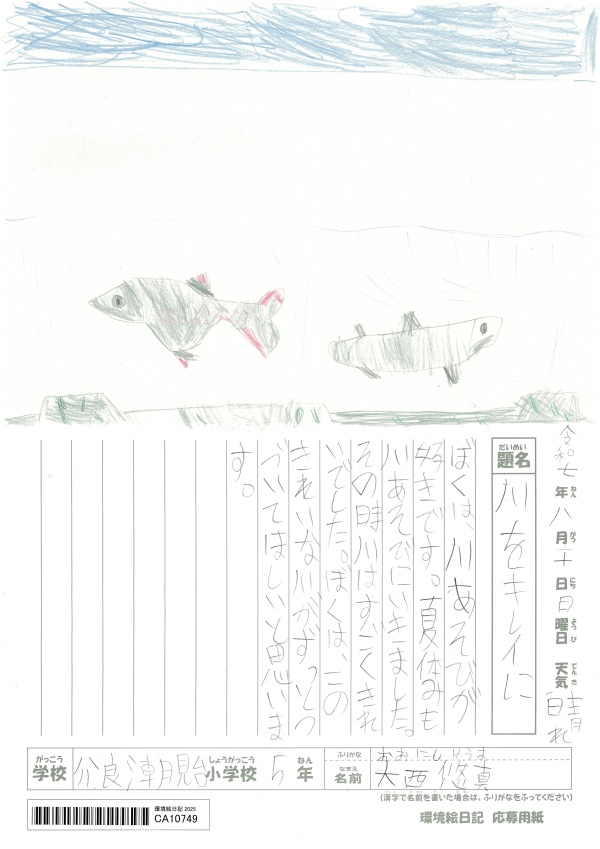 令和七年八月十日日曜日 天気 晴れ
ねん がつ にち ようび てんき
だいめい
題名 川をキレイに
ぼくは、川あそびが
好きです。夏休みも
川あそびにいきました。
その時川はすごくきれ
いでした。ぼくは、この
きれいな川がずっとつ
づいてほしいと思いま
す。
がっこう しょうがっこう ねん
学校 奈良潮見台小学校 5年
ふりがな おおにし ゆうま
なまえ
名前 大西悠真
(漢字で名前を書いた場合は、ふりがなをふってください)
環境絵日記 2025
CA10749
環境絵日記 応募用紙